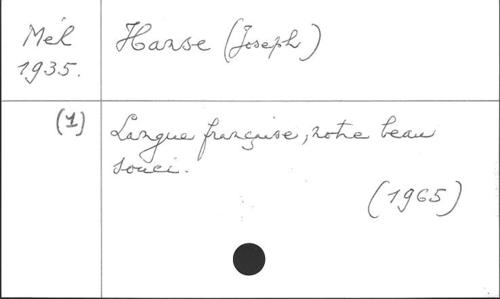 Mél
1935.
Hanse (Joseph)
(1)
Langue française, notre beau
souci.
(1965)